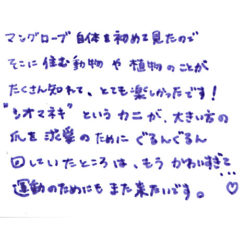 マングローブ自体を初めて見たので
そこに住む動物や植物のことが
たくさん知れて、とても楽しかったです！
"シオマネキ"というカニが、大きい方の
爪を求愛のためにぐるんぐるん
回していたところは、もうかわいすぎて…
運動のためにもまた来たいです。♡